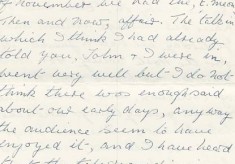 of November we had the, t.
Then and Now, affair. The talk in
which I think I had already
told you, John + I were in,
went very well but I do not
think there was enough said
about our early days, anyway
the audience seem to have
enjoyed it, and I have heard